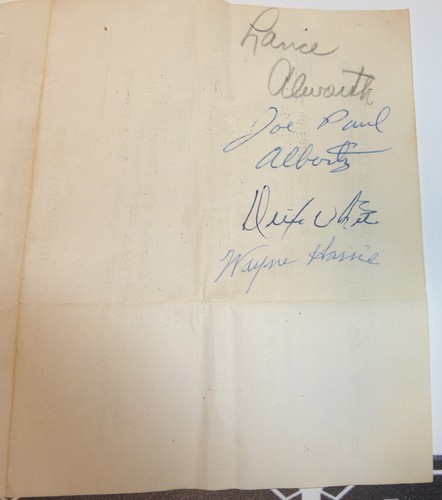 Lance
Alworth
Joe Paul
Alberty
Dixie White
Wayne Harris